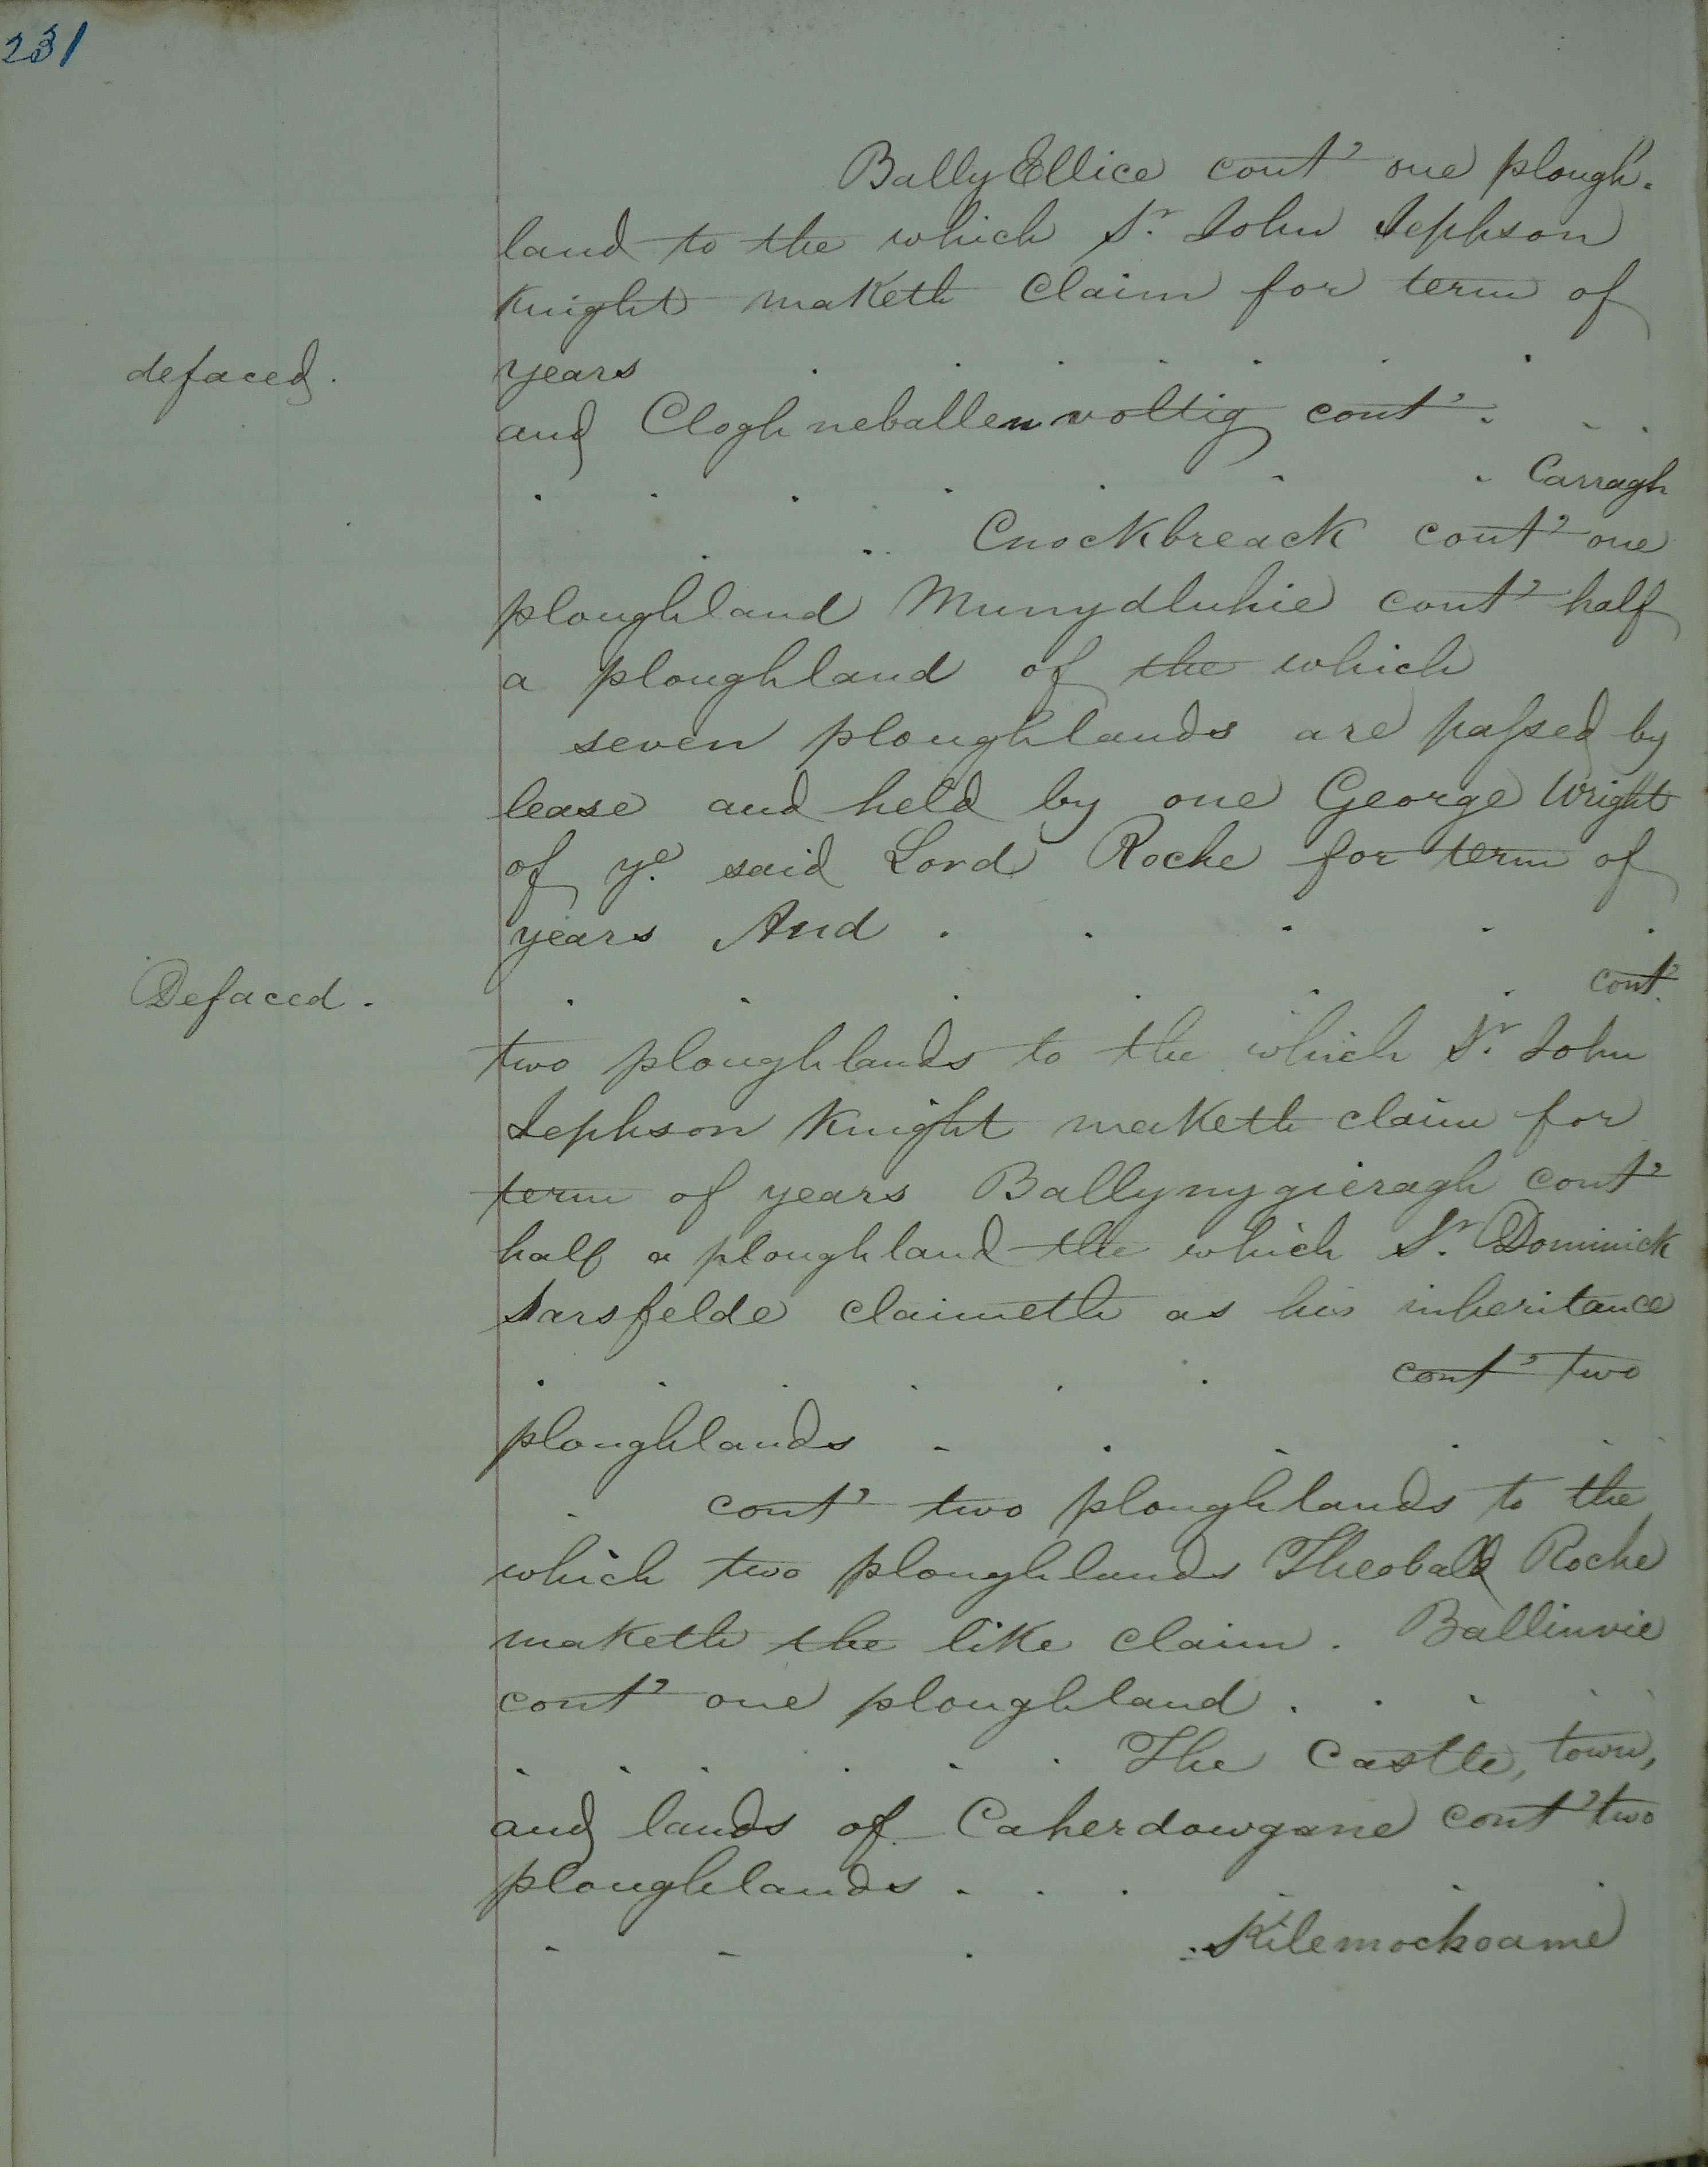 231
BallyEllice cont' one plough-
land to the which Sr. John Jephson
Knight maketh Claim for term of
defaced. years . . . . . . .
and Cloghneballenvoltig cont'. . .
. . . . . . . Carragh
. . . Cnockbreack cont' one
ploughland Munydluhie cont' half
a ploughland of the which
seven ploughlands are passed by
lease and held by one George Wright
of ye. said Lord Roche for term of
years And . . . . .
Defaced. . . . . . . cont'
two ploughlands to the which Sr. John
Jephson Knight maketh claim for
term of years Ballynygieragh cont'
half a ploughland the which Sr. Dominick
Sarsfelde claimeth as his inheritance
. . . . . . cont' two
ploughlands . . . . .
. cont' two ploughlands to the
which two ploughlands Theobald Roche
maketh the like claim. Ballinvie
cont' one ploughland . . . . .
. . . . . . The Castle, town,
and lands of Caherdowgane cont' two
ploughlands . . . . . .
. . . . Kilemochoame